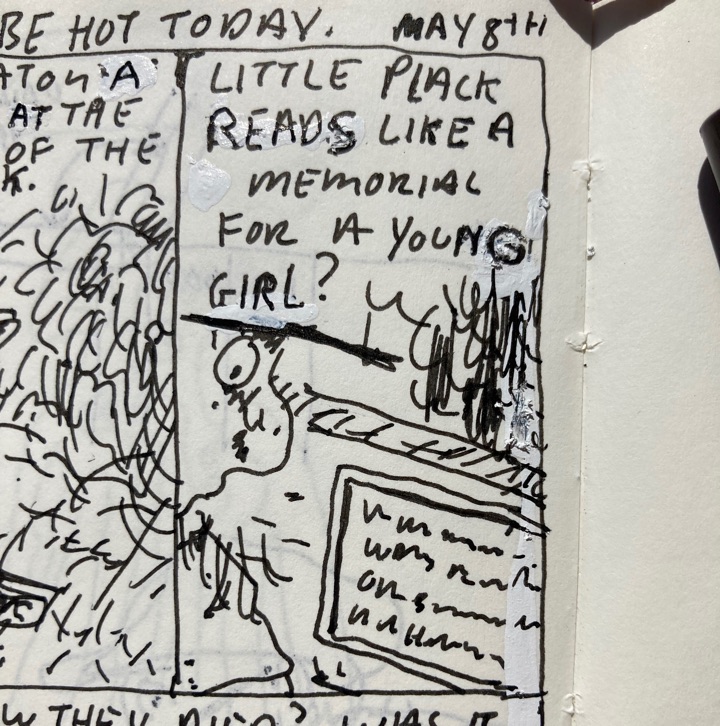 BE HOT TODAY. MAY 8TH
A
AT THE
OF THE
LITTLE PLACK
READS LIKE A
MEMORIAL
FOR A YOUNG
GIRL?
THEY DIED? WAS IT